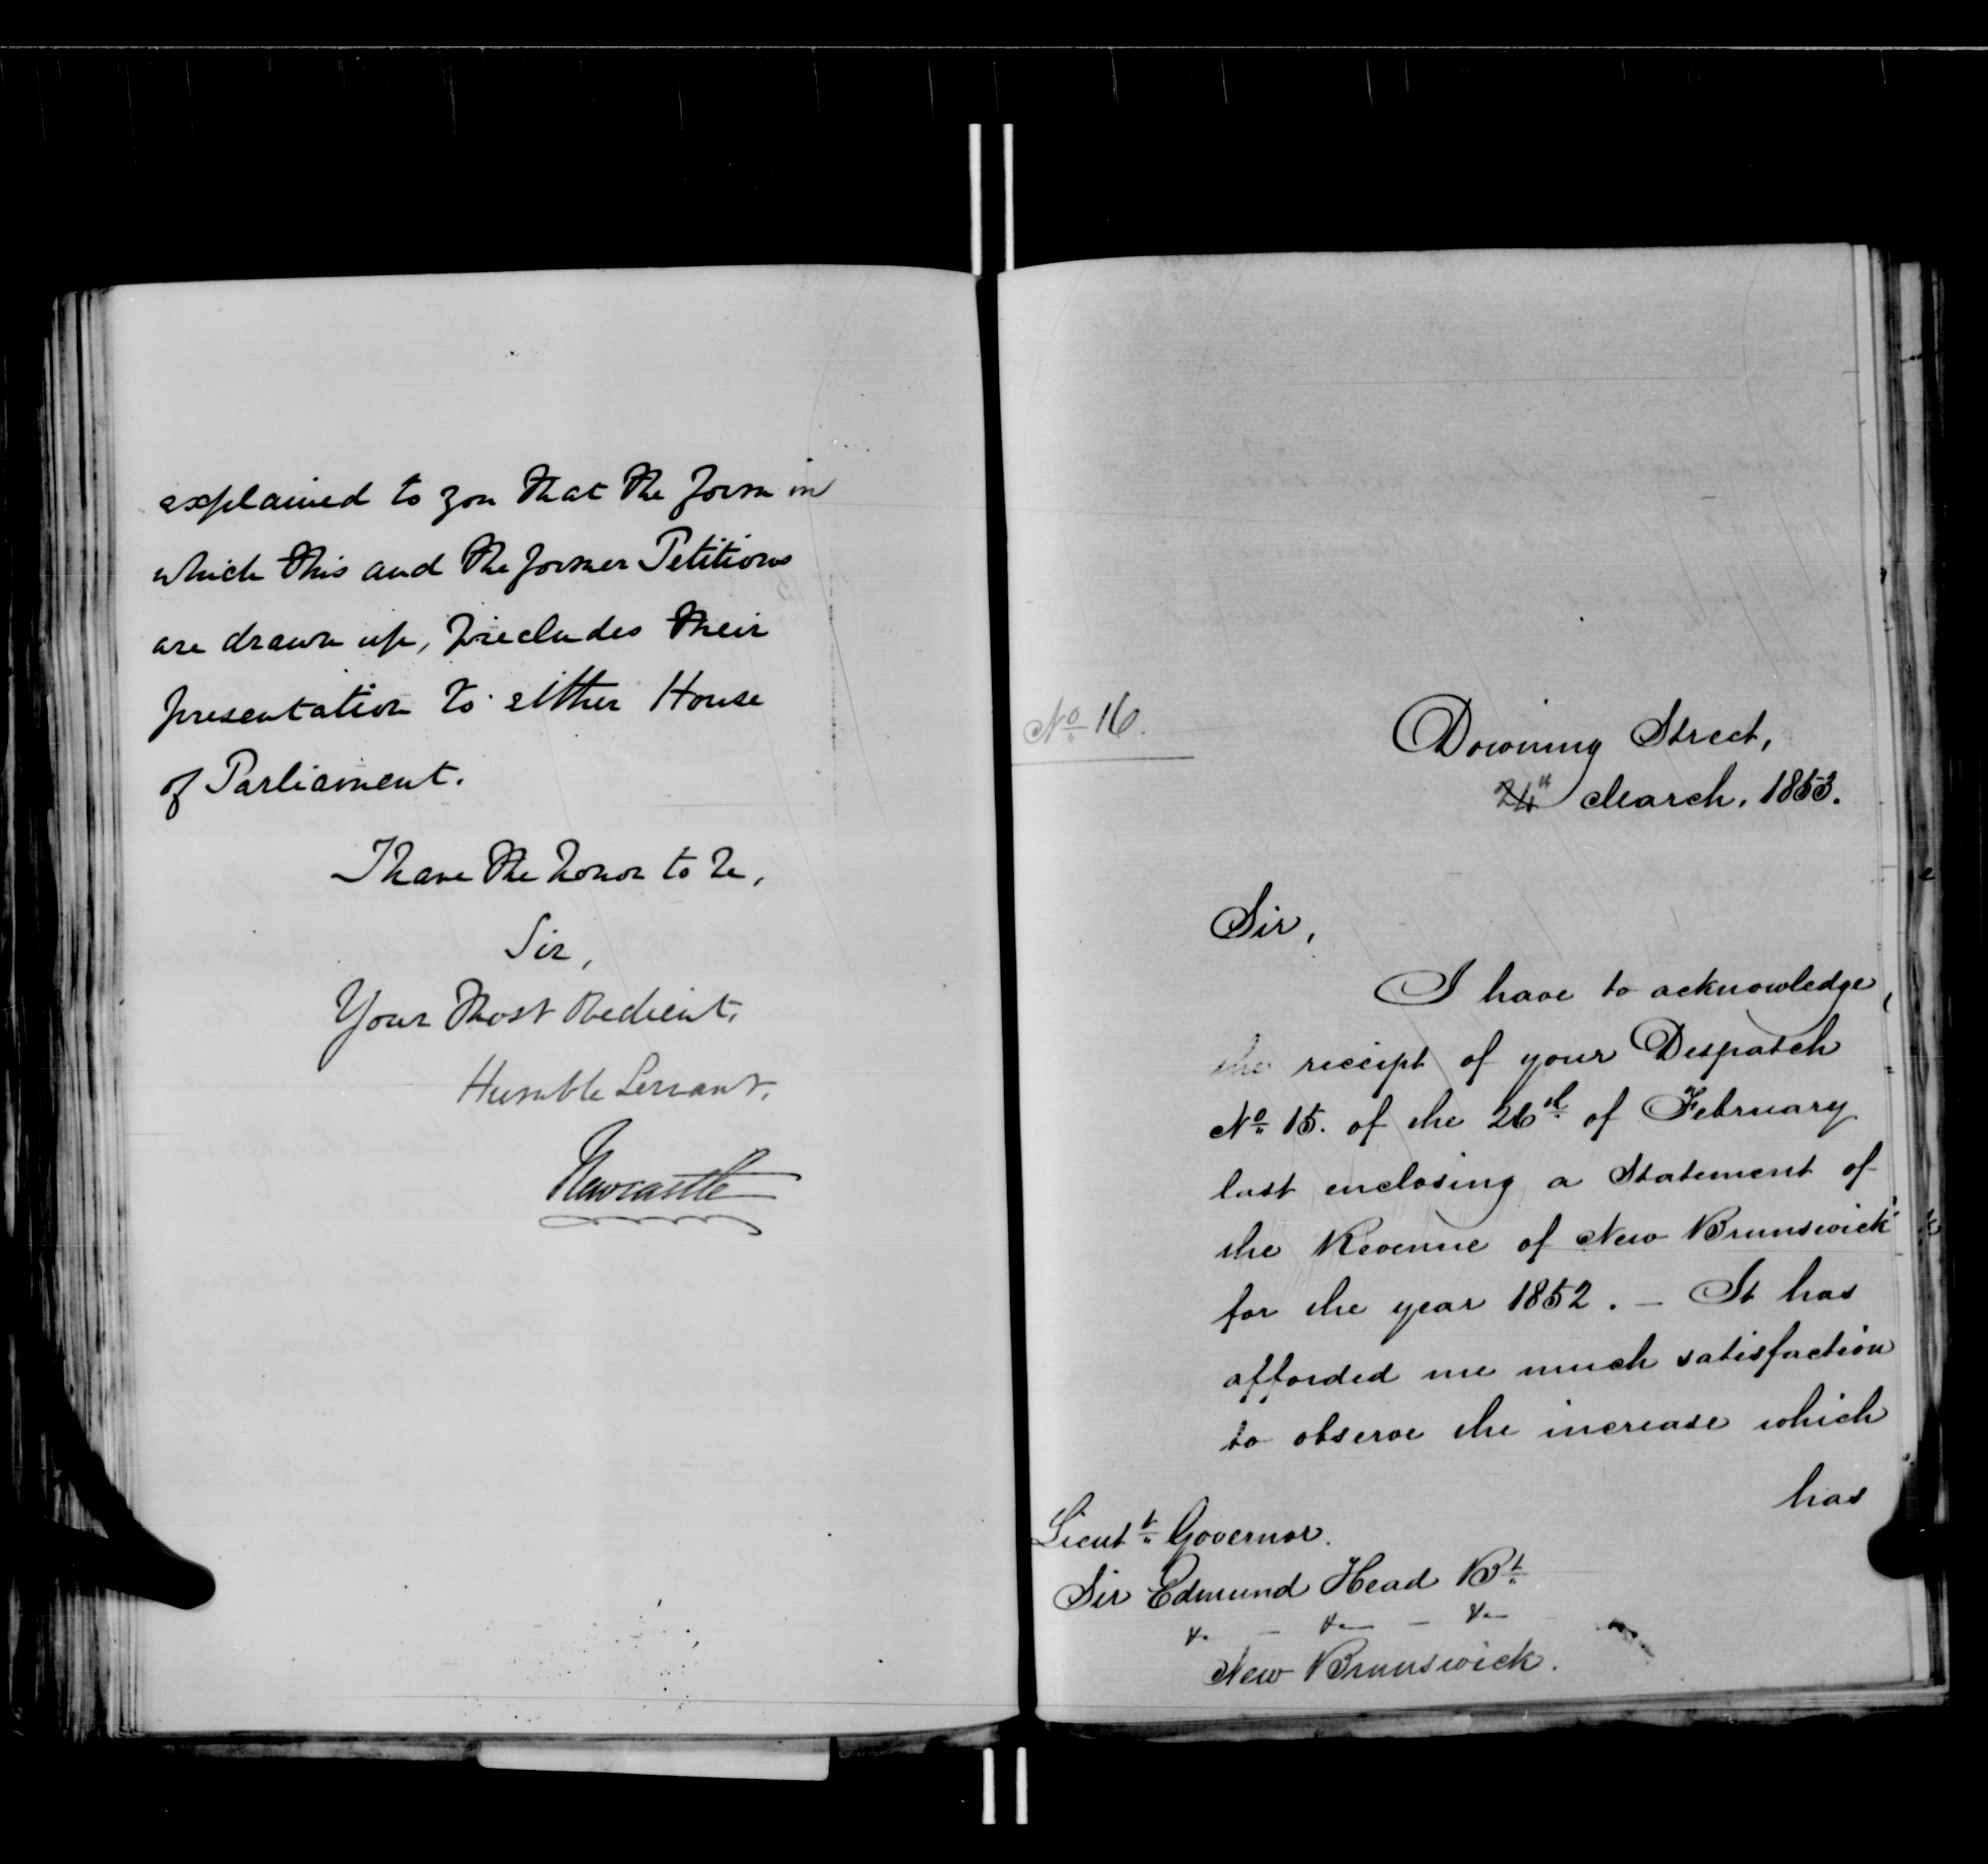 explained to you that the form in
which this and the former Petitions
are drawn up, precludes their
presentation to either House
of Parliament.
I have the honor to be,
Sir,
Your Most Obedient,
Humble Servant,
Newcastle
No 16.
Downing Street,
24th March, 1853.
Sir,
I have to acknowledge
the receipt of your Despatch
No 15. of the 26th of February
last enclosing a Statement of
the Revenue of New Brunswick
for the year 1852. – It has
afforded me much satisfaction
to observe the increase which
has
Lieutt Governor.
Sir Edmund Head Bt
&c – &c – &c
New Brunswick.